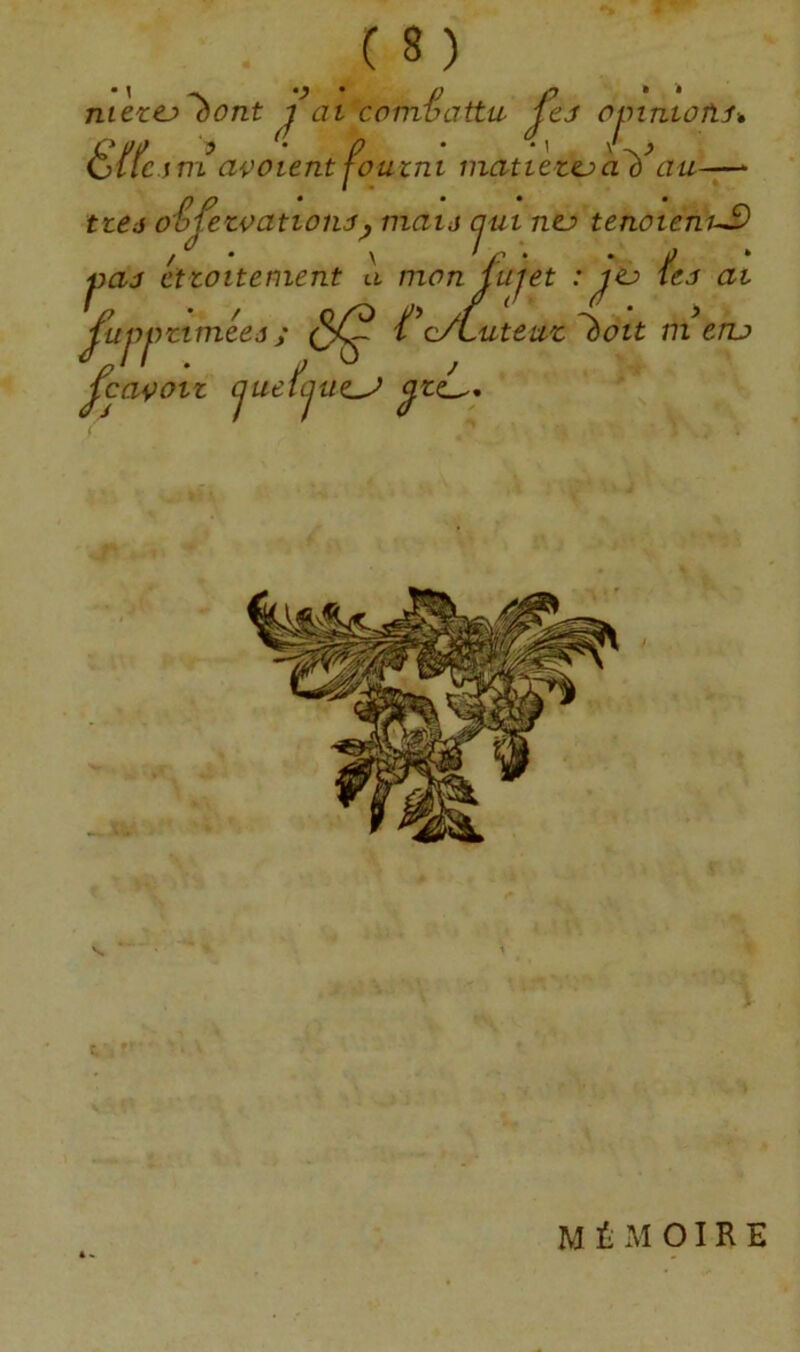 ( 8 )
niere dont j'ai combattu ses opinions.
Elles m'avoient fourni matiere à d'au—
tres observations, mais qui ne tenoient
pas étroitement à mon sujet : je les ai
supprimées ; & l'Auteur doit m'en
sçavoir quelque gré.
MÉMOIRE